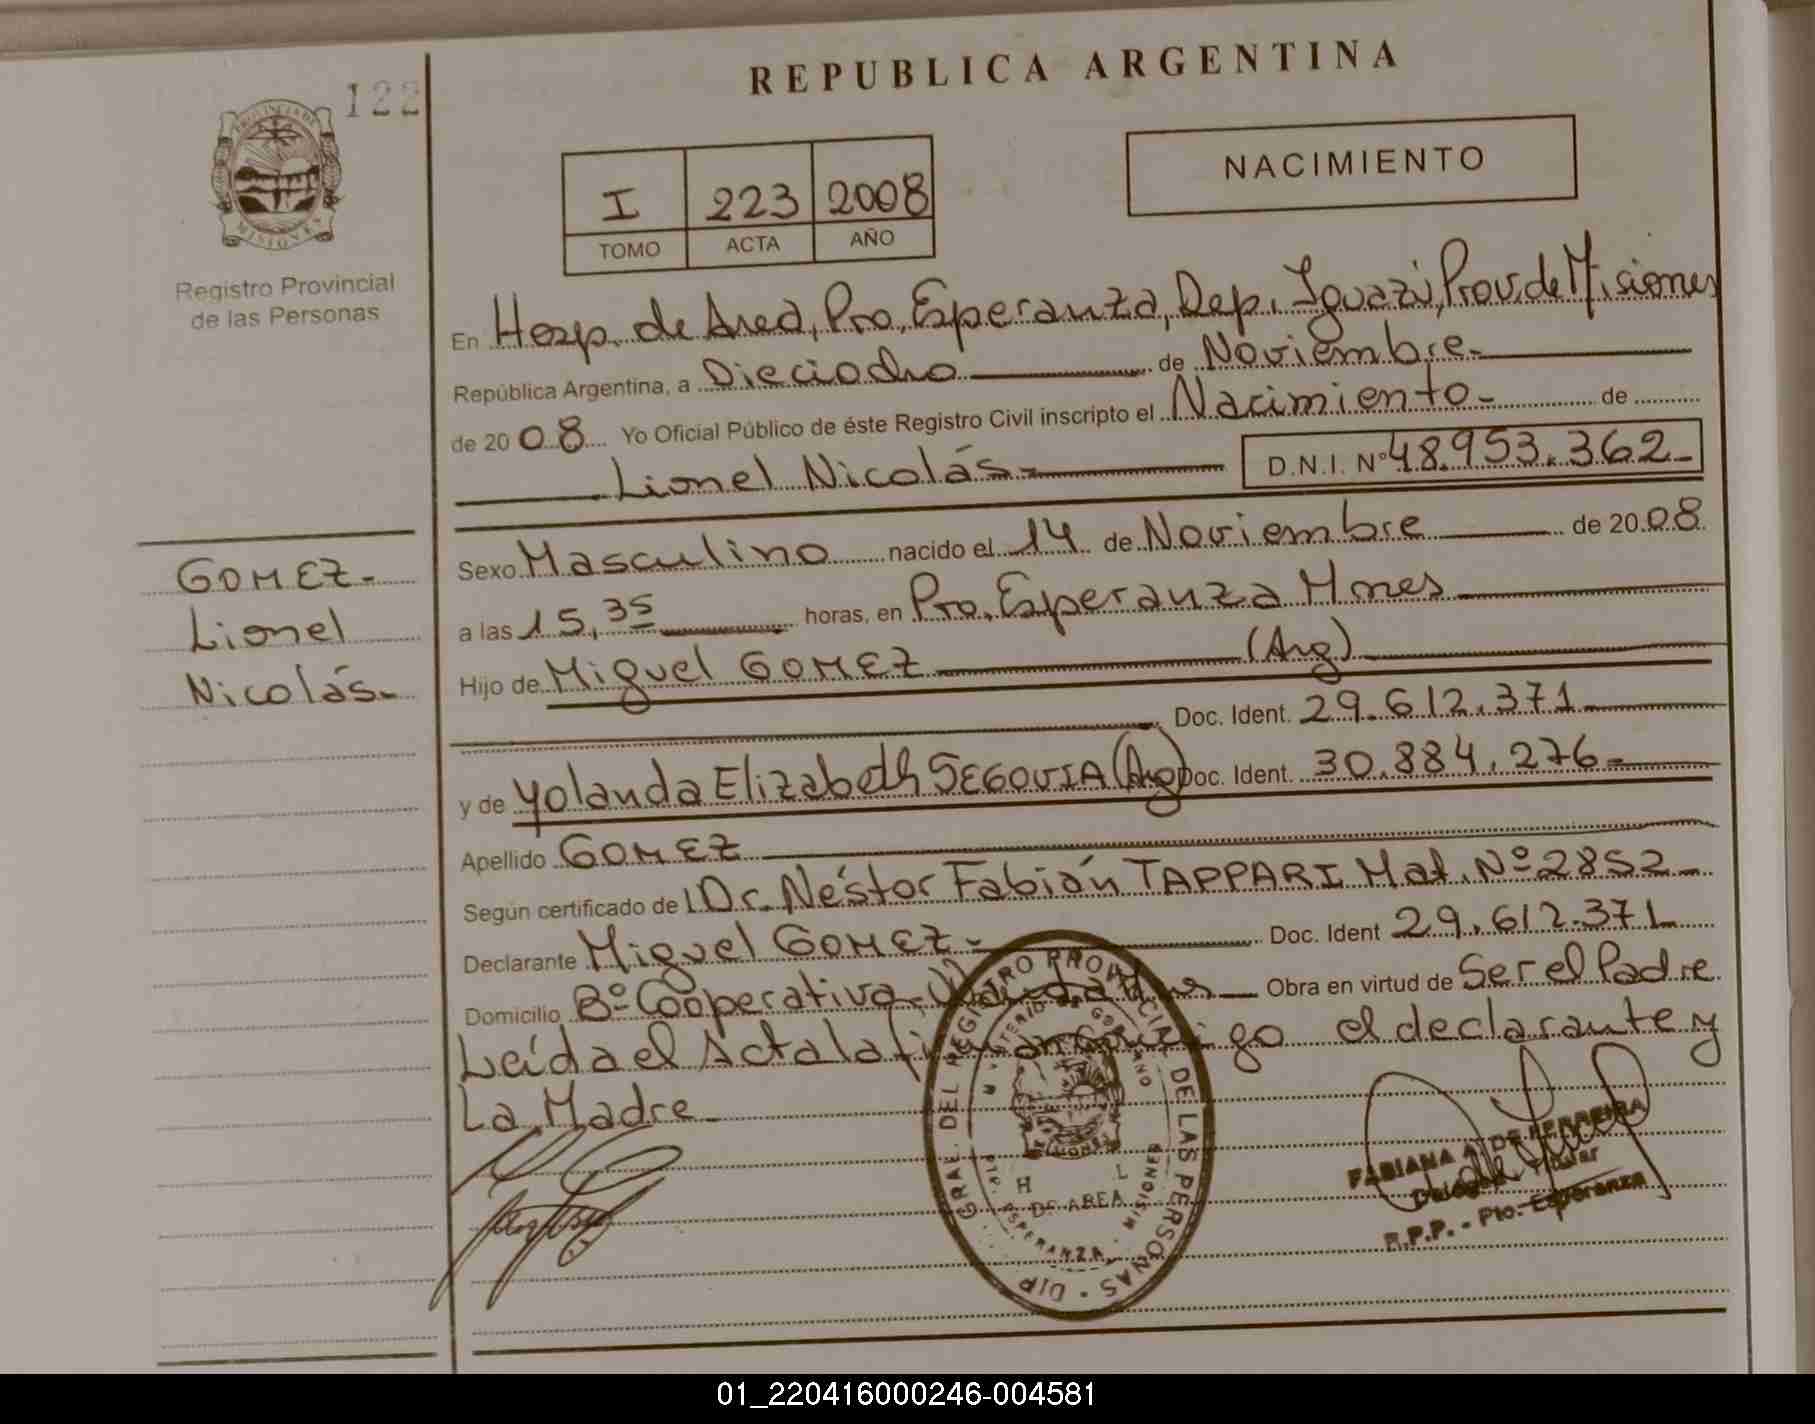 122
REPUBLICA ARGENTINA
PROVINCIA DE
MISIONES
Registro Provincial
de las Personas
I 223 2008
TOMO ACTA AÑO
NACIMIENTO
En Hosp. de Area, Pto. Esperanza, Dep. Iguazú, Prov. de Misiones
República Argentina, a Dieciocho de Noviembre.
de 2008 Yo Oficial Público de éste Registro Civil inscripto el Nacimiento de
Lionel Nicolás D.N.I. Nº 48.953.362
GOMEZ
Lionel
Nicolás
Sexo Masculino nacido el 14 de Noviembre de 2008
a las 15,35 horas, en Pto. Esperanza Mnes
Hijo de Miguel GOMEZ (Arg)
Doc. Ident. 29.612.371
y de Yolanda Elizabeth SEGOVIA (Arg) Doc. Ident. 30.884.276
Apellido GOMEZ
Según certificado de Dr. Néstor Fabián TAPPARI Mat. Nº 2852
Declarante Miguel GOMEZ Doc. Ident 29.612.371
Domicilio Bº Cooperativa, Obra en virtud de Ser el Padre
Leída el Acta la go el declarante y
La Madre
DIP. GRAL. DEL REGISTRO PROVINCIAL DE LAS PERSONAS
MINISTERIO DE GOBIERNO
MISIONES
H L
DE AREA
PTO. ESPERANZA - MISIONES
FABIANA A. DE FERREIRA
Delegada Titular
R.P.P. - Pto. Esperanza
01_220416000246-004581